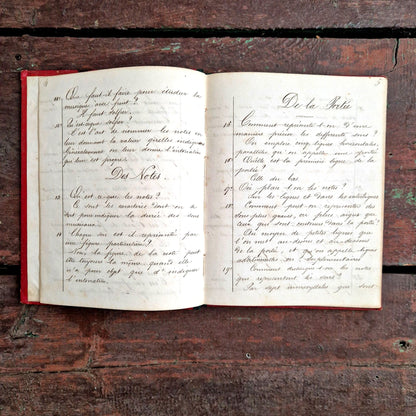 11° Que faut-il faire pour étudier la
musique avec fruit?
Il faut solfier.
12° Qu'est-ce que solfier?
C'est l'art de nommer les notes en
leur donnant la valeur qu'elles indiquent
et en leur donnant l'intonation
qui leur est propre.
Des Notes.
13 Qu'est-ce que les notes?
Ce sont les caractères dont on se
sert pour indiquer la durée des sons
musicaux.
14 Chaque son est-il représenté par
une figure particulière?
Non la figure de la note peut
être toujours la même, quant à elle
n'a pour objet que d'indiquer
l'intonation.
5
De la Portée
15° Comment représente-t-on d'une
manière précise les différents sons?
On emploie cinq lignes horizontales
parallèles qu'on appelle une portée
16° Quelle est la première ligne de la
portée?
Celle du bas
17° Où place-t-on les notes?
Sur les lignes et dans les interlignes
18° Comment peut-on représenter des
sons plus graves, ou plus aigus que
ceux qui sont contenus dans la portée?
Au moyen de petites lignes que
l'on met au-dessus et au-dessous
de la portée, et qu'on appelle lignes
additionnelles ou supplémentaires
19° Comment distingue-t-on les notes
qui représentent les sons?
Par sept monosyllabes qui sont